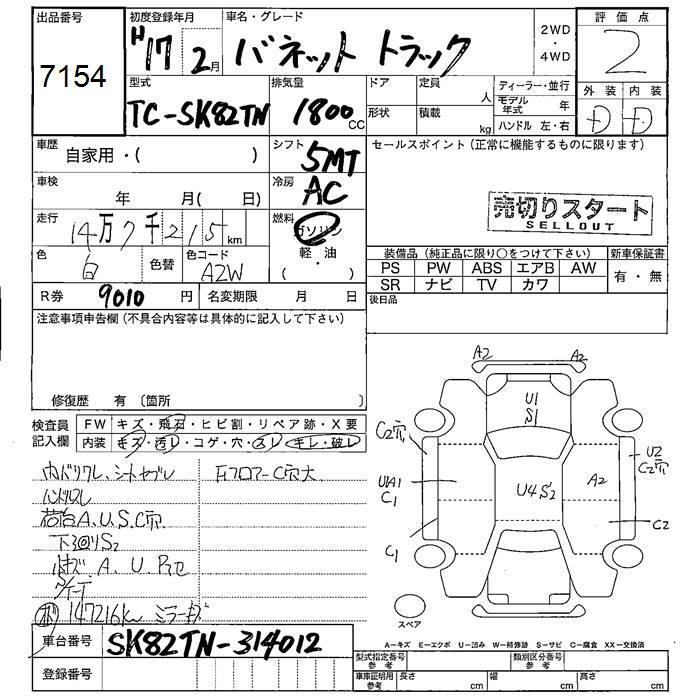 出品番号
7154
初度登録年月
H17 2月
車名・グレード
バネット トラック
2WD
・
4WD
評価点
2
型式
TC-SK82TN
排気量
1800cc
ドア
定員
人
形状
積載
kg
ディーラー・並行
モデル年式 年
ハンドル 左・右
外装
内装
D D
車歴
自家用・( )
シフト
5MT
セールスポイント(正常に機能するものに限ります)
車検
年 月( 日)
冷房
AC
売切りスタート
SELLOUT
走行
14万7千215km
燃料
ガソリン
軽・油
( ・ )
色
白
色替
色コード
A2W
装備品(純正品に限り○をつけて下さい)
新車保証書
PS PW ABS エアB AW
SR ナビ TV カワ
有・無
R券
9010円
名変期限 月 日
後日品
注意事項申告欄(不具合内容等は具体的に記入して下さい)
修復歴 有(箇所 )
検査員
記入欄
FW キズ・飛石・ヒビ割・リペア跡・X要
内装 キズ・汚レ・コゲ・穴・スレ・キレ・破レ
内ドリワレ、シートヤブレ
ハンドルスレ
荷台A.U.S.C穴
下回りS2
A.U.
147216km ミラーキズ
フロアーC穴大
A2
A2
U1
S1
C2穴
U2
C2穴
UA1
C1
U4S2
A2
C1
C2
スペア
A-キズ E-エクボ U-凹み W-補修跡 S-サビ C-腐食 XX-交換済
車台番号
SK82TN-314012
登録番号
型式指定番号
参考
類別区分番号
参考
車庫証明用
参考
長さ cm
幅 cm
高さ cm